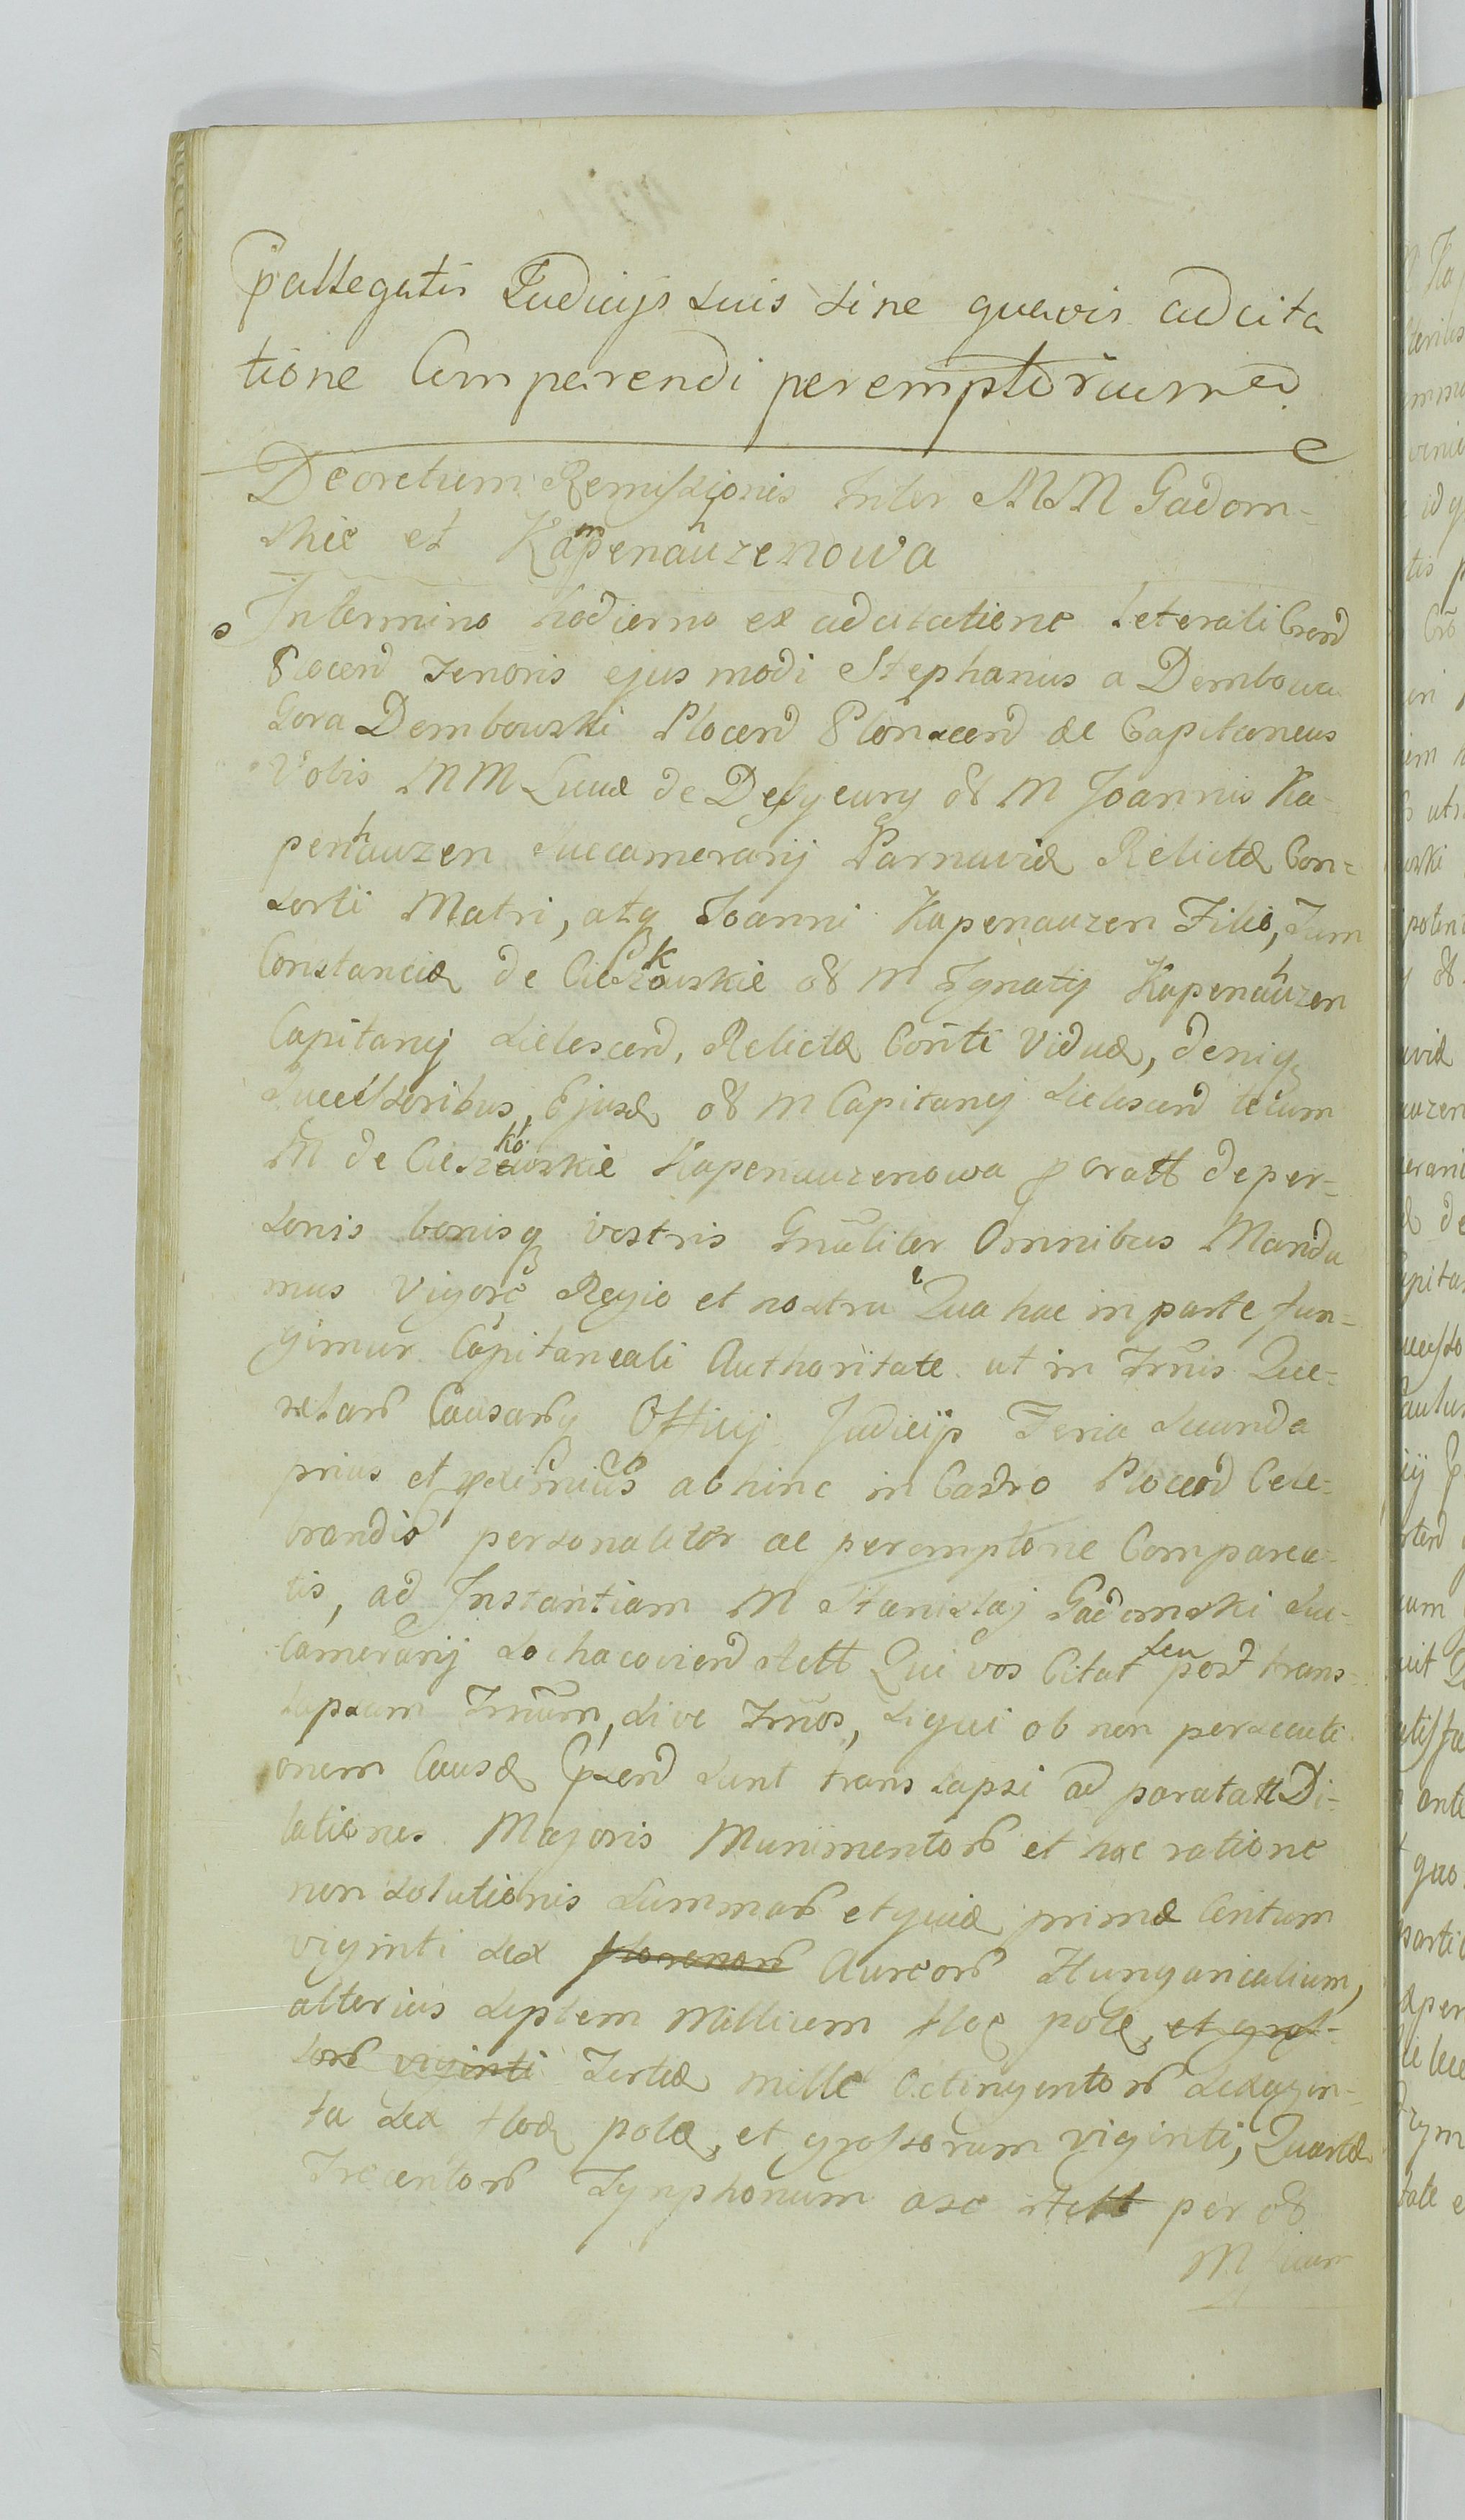 pallegatis Judicijs suis sine quavis adcita
tione Comparendi peremptorium
Decretum Remissionis Inter MM Gadom-
skie et Kampenhauzenowa
In termino hodierno ex adcitatione Leterali Crend
Plocend Tenoris ejus modi Stephanus a Dembowa
Gora Dembowski Plocend Plonscend &c Capitaneus
Vobis MM Luuæ de Desyeury os M Joannis Ka-
penhauzen Succamerarij Parnaviæ Relictæ Con-
sorti Matri, atq Joanni Kapenauzen Filio, Tum
Constanciæ de Cieszkowskie os M Ignatij Kapenahuzen
Capitanij Lielescend, Relictæ Conti Viduæ, deniq
Successoribus, Ejusd os M Capitanij Lielescend tetum
M de Cieszkowskie Kapenauzenowa p oratt de per-
sonis bonisq vestris Gnaliter Omnibus Manda
mus Vigore Regio et nostra Qua hac in parte fun-
gimur Capitaneali Authoritate ut in Trnis Que-
relars Causarq Officij Judicijs Feria Secunda
prius et abhinc in Castro Plocend Cele-
brandis personaliter ac peremptorie Comparea-
tis, ad Instantiam M Stanislaj Gadomski Suc-
Camerarij Sochacoviend Rett Qui vos Citat seu post trans-
lapsum Trnum, sive Trnos, siqui ob non persecuti
onem Causæ psend sunt trans lapsi ad paratatt Di-
lationes Majoris Munimentors et hac ratione
non solutionis Summars et quid primæ Centum
viginti sex florenors Aureors Hungaricalium,
alterius septem Millium floc pole, et gros-
sors viginti Tertiæ mille Octingentors sexagin-
ta sex floc pole, et grossorum viginti, Quartæ
Trecentors Tynphonum ase Rett per os
M Suum